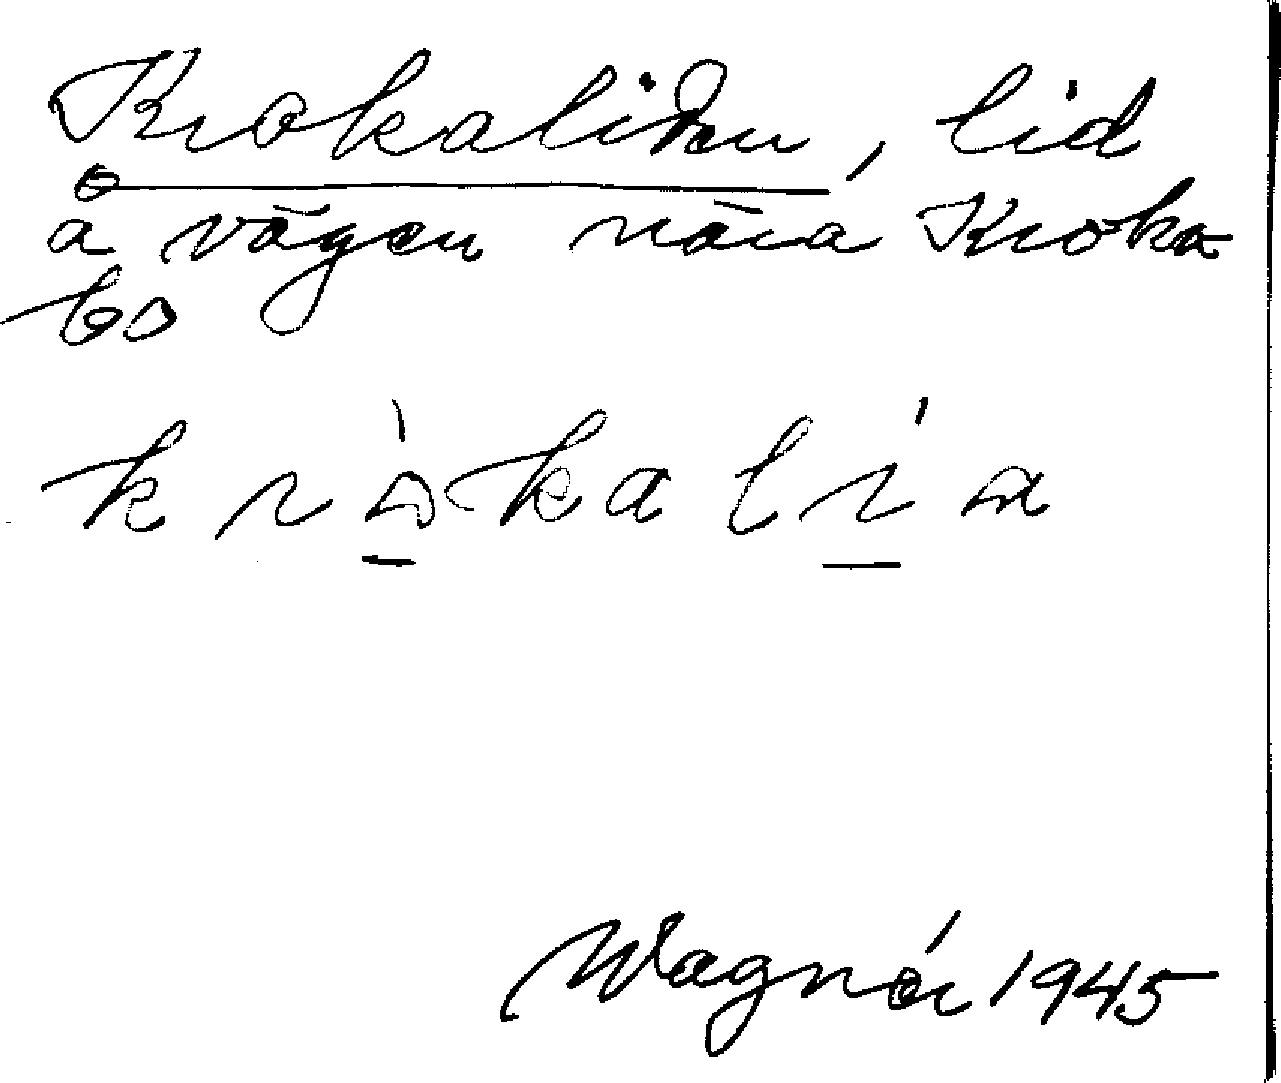 Krokaliden, lid
å vägen nära Kroka
bo
kròkalía
Wagnér 1945